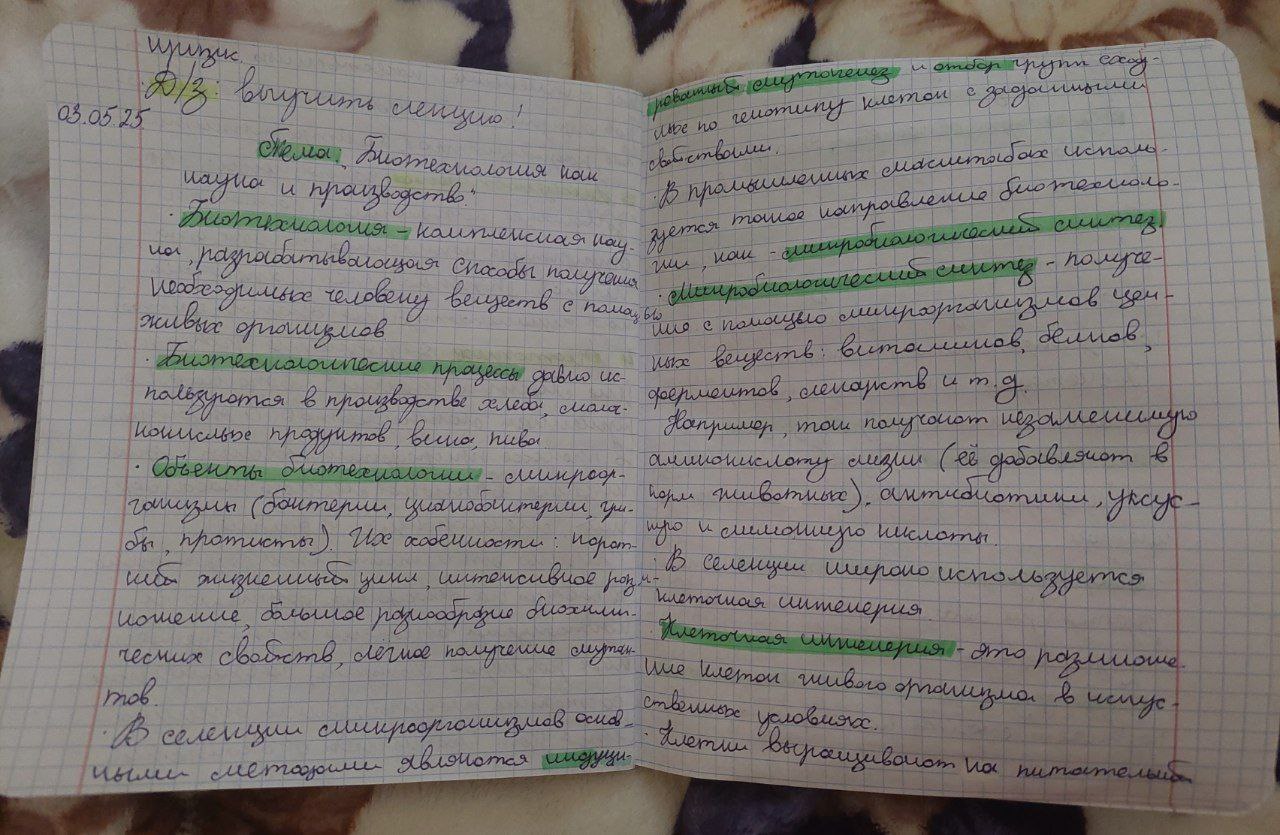 щизик.
Д/З: выучить лекцию!
03.05.25.
Тема: "Биотехнология как
наука и производство".
· Биотехнология - комплексная нау-
ка, разрабатывающая способы получения
необходимых человеку веществ с помощью
живых организмов
· Биотехнологические процессы давно ис-
пользуются в производстве хлеба, моло-
кокислых продуктов, вина, пива
· Объекты биотехнологии - микроор-
ганизмы (бактерии, цианобактерии, гри-
бы, протисты). Их хобенности: корот-
кий жизненный цикл, интенсивное разм-
ножение, большое разнообразие биохими-
ческих свойств, лёгкое получение мутан-
тов.
· В селекции микроорганизмов основ-
ными методами являются индуци-
рованный мутагенез и отбор групп сход-
ных по генотипу клеток с заданными
свойствами.
· В промышленных масштабах исполь-
зуется такое направление биотехноло-
гии, как - микробиологический синтез
· Микробиологический синтез - получе-
ние с помощью микроорганизмов цен-
ных веществ: витаминов, белков,
ферментов, лекарств и т.д.
Например, так получают незаменимую
аминокислоту лизин (её добавляют в
корм животных), антибиотики, уксус-
ную и лимонную кислоты.
· В селекции широко используется
клеточная инженерия.
· Клеточная инженерия - это размноже-
ние клеток живого организма в искус-
ственных условиях.
· Клетки выращивают на питательной